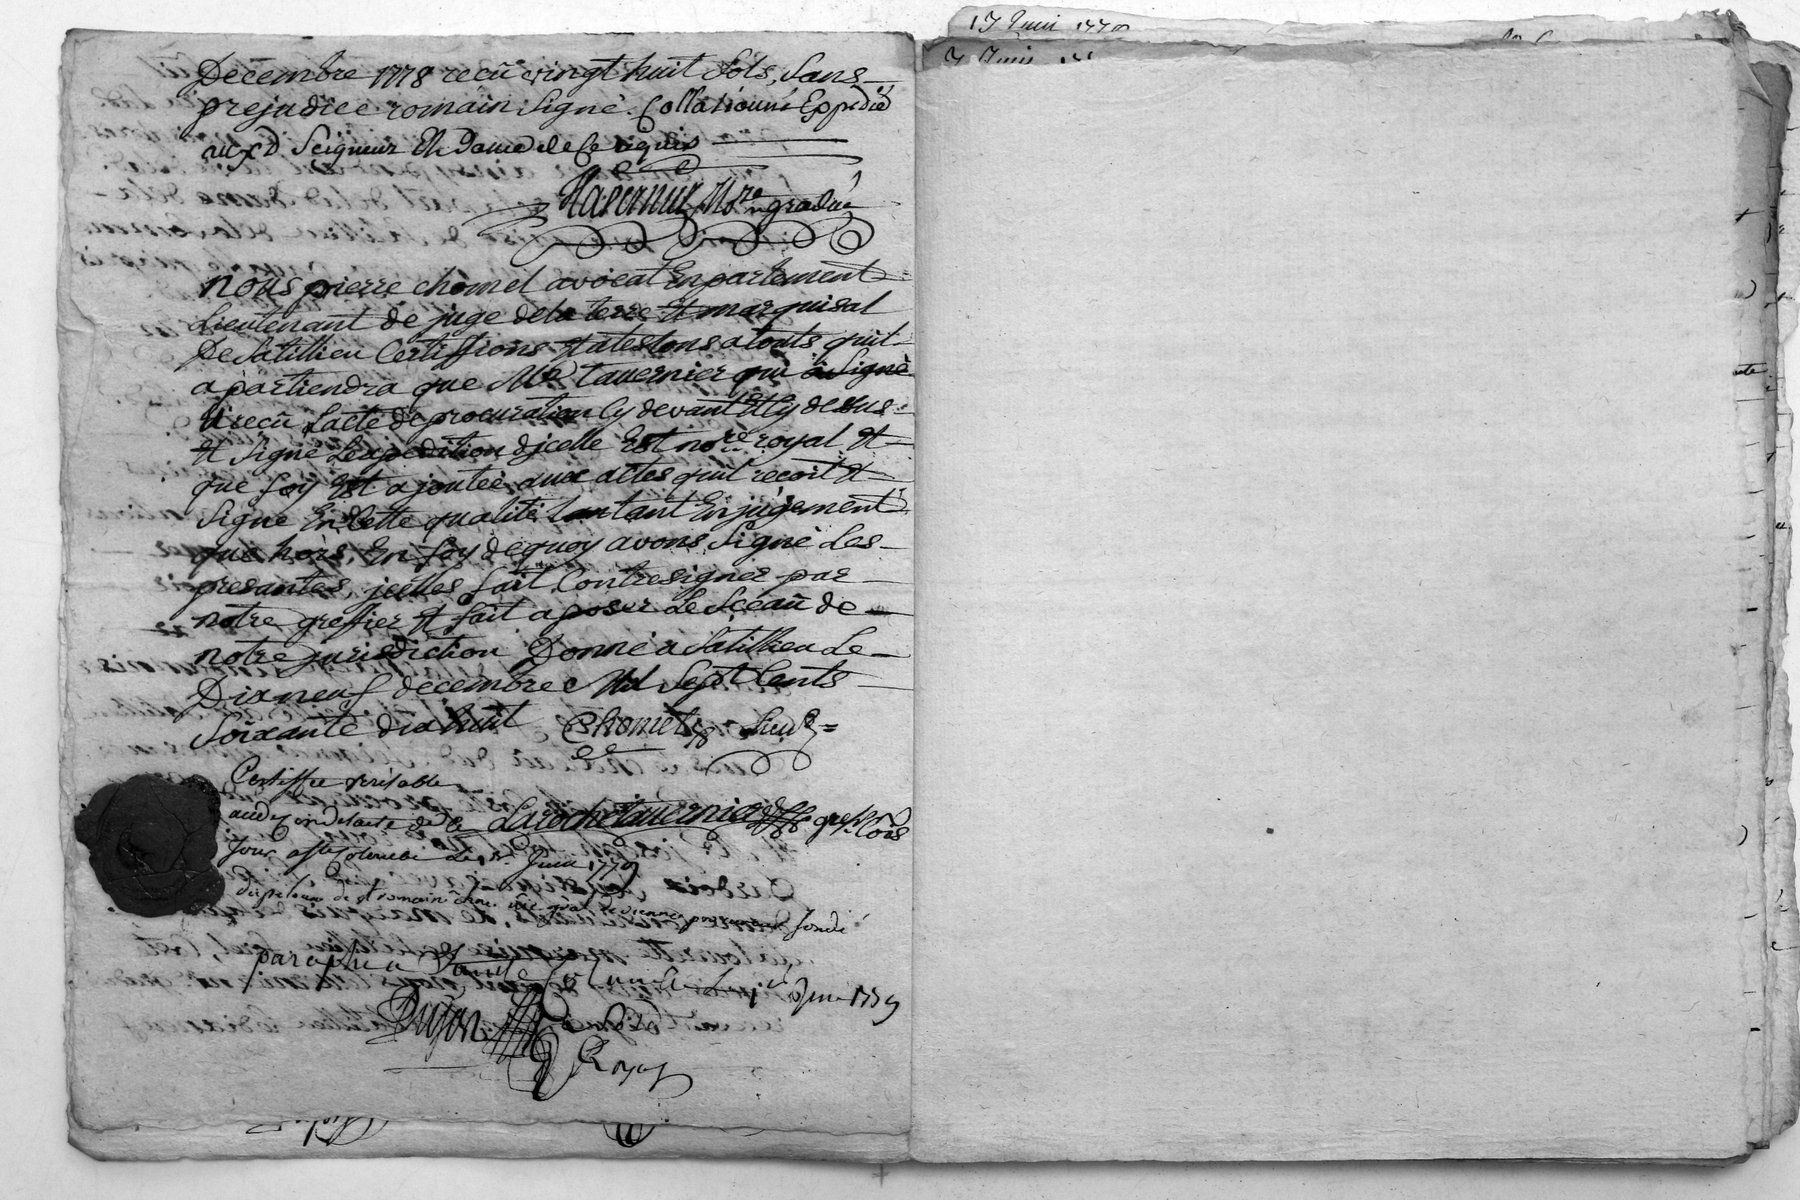 Decembre 1778 recu vingt huit sols, sans
prejudice romain signé. Collationné Expedié
auxd Seigneur Et Dame de ce requis
Tavernier Nore gradué
nous pierre chomel avocat En parlement
Lieutenant de juge de la terre Et marquisat
De Satillieu Certiffions Et atestons a touts quil
apartiendra que Me tavernier qui a Signé
Et recu Lacte de procuration Cy devant Et Cy dessus
Et Signé Lexpedition djcelle Est nore royal Et
que foy Est ajoutée aux actes quil recoit Et
Signe En Cette qualité tant En jugement
que hors En foy dequoy avons Signé Les
presantes, jcelles fait Contresigner par
notre greffier Et fait aposer Le Sceau de
notre jurisdiction Donné a Satillieu Le
Dix neuf decembre Mil Sept Cents
Soixante dix huit Chomel
Certiffie veritable
au desir de lacte de Ce Laroche tavernier greff.
jour a Ste Colombe Le juin 1779
de St romain fondé
paraphé a Sainte Colombe Le juin 1779
Dujon
Royer
17 Juin 1779
Juin